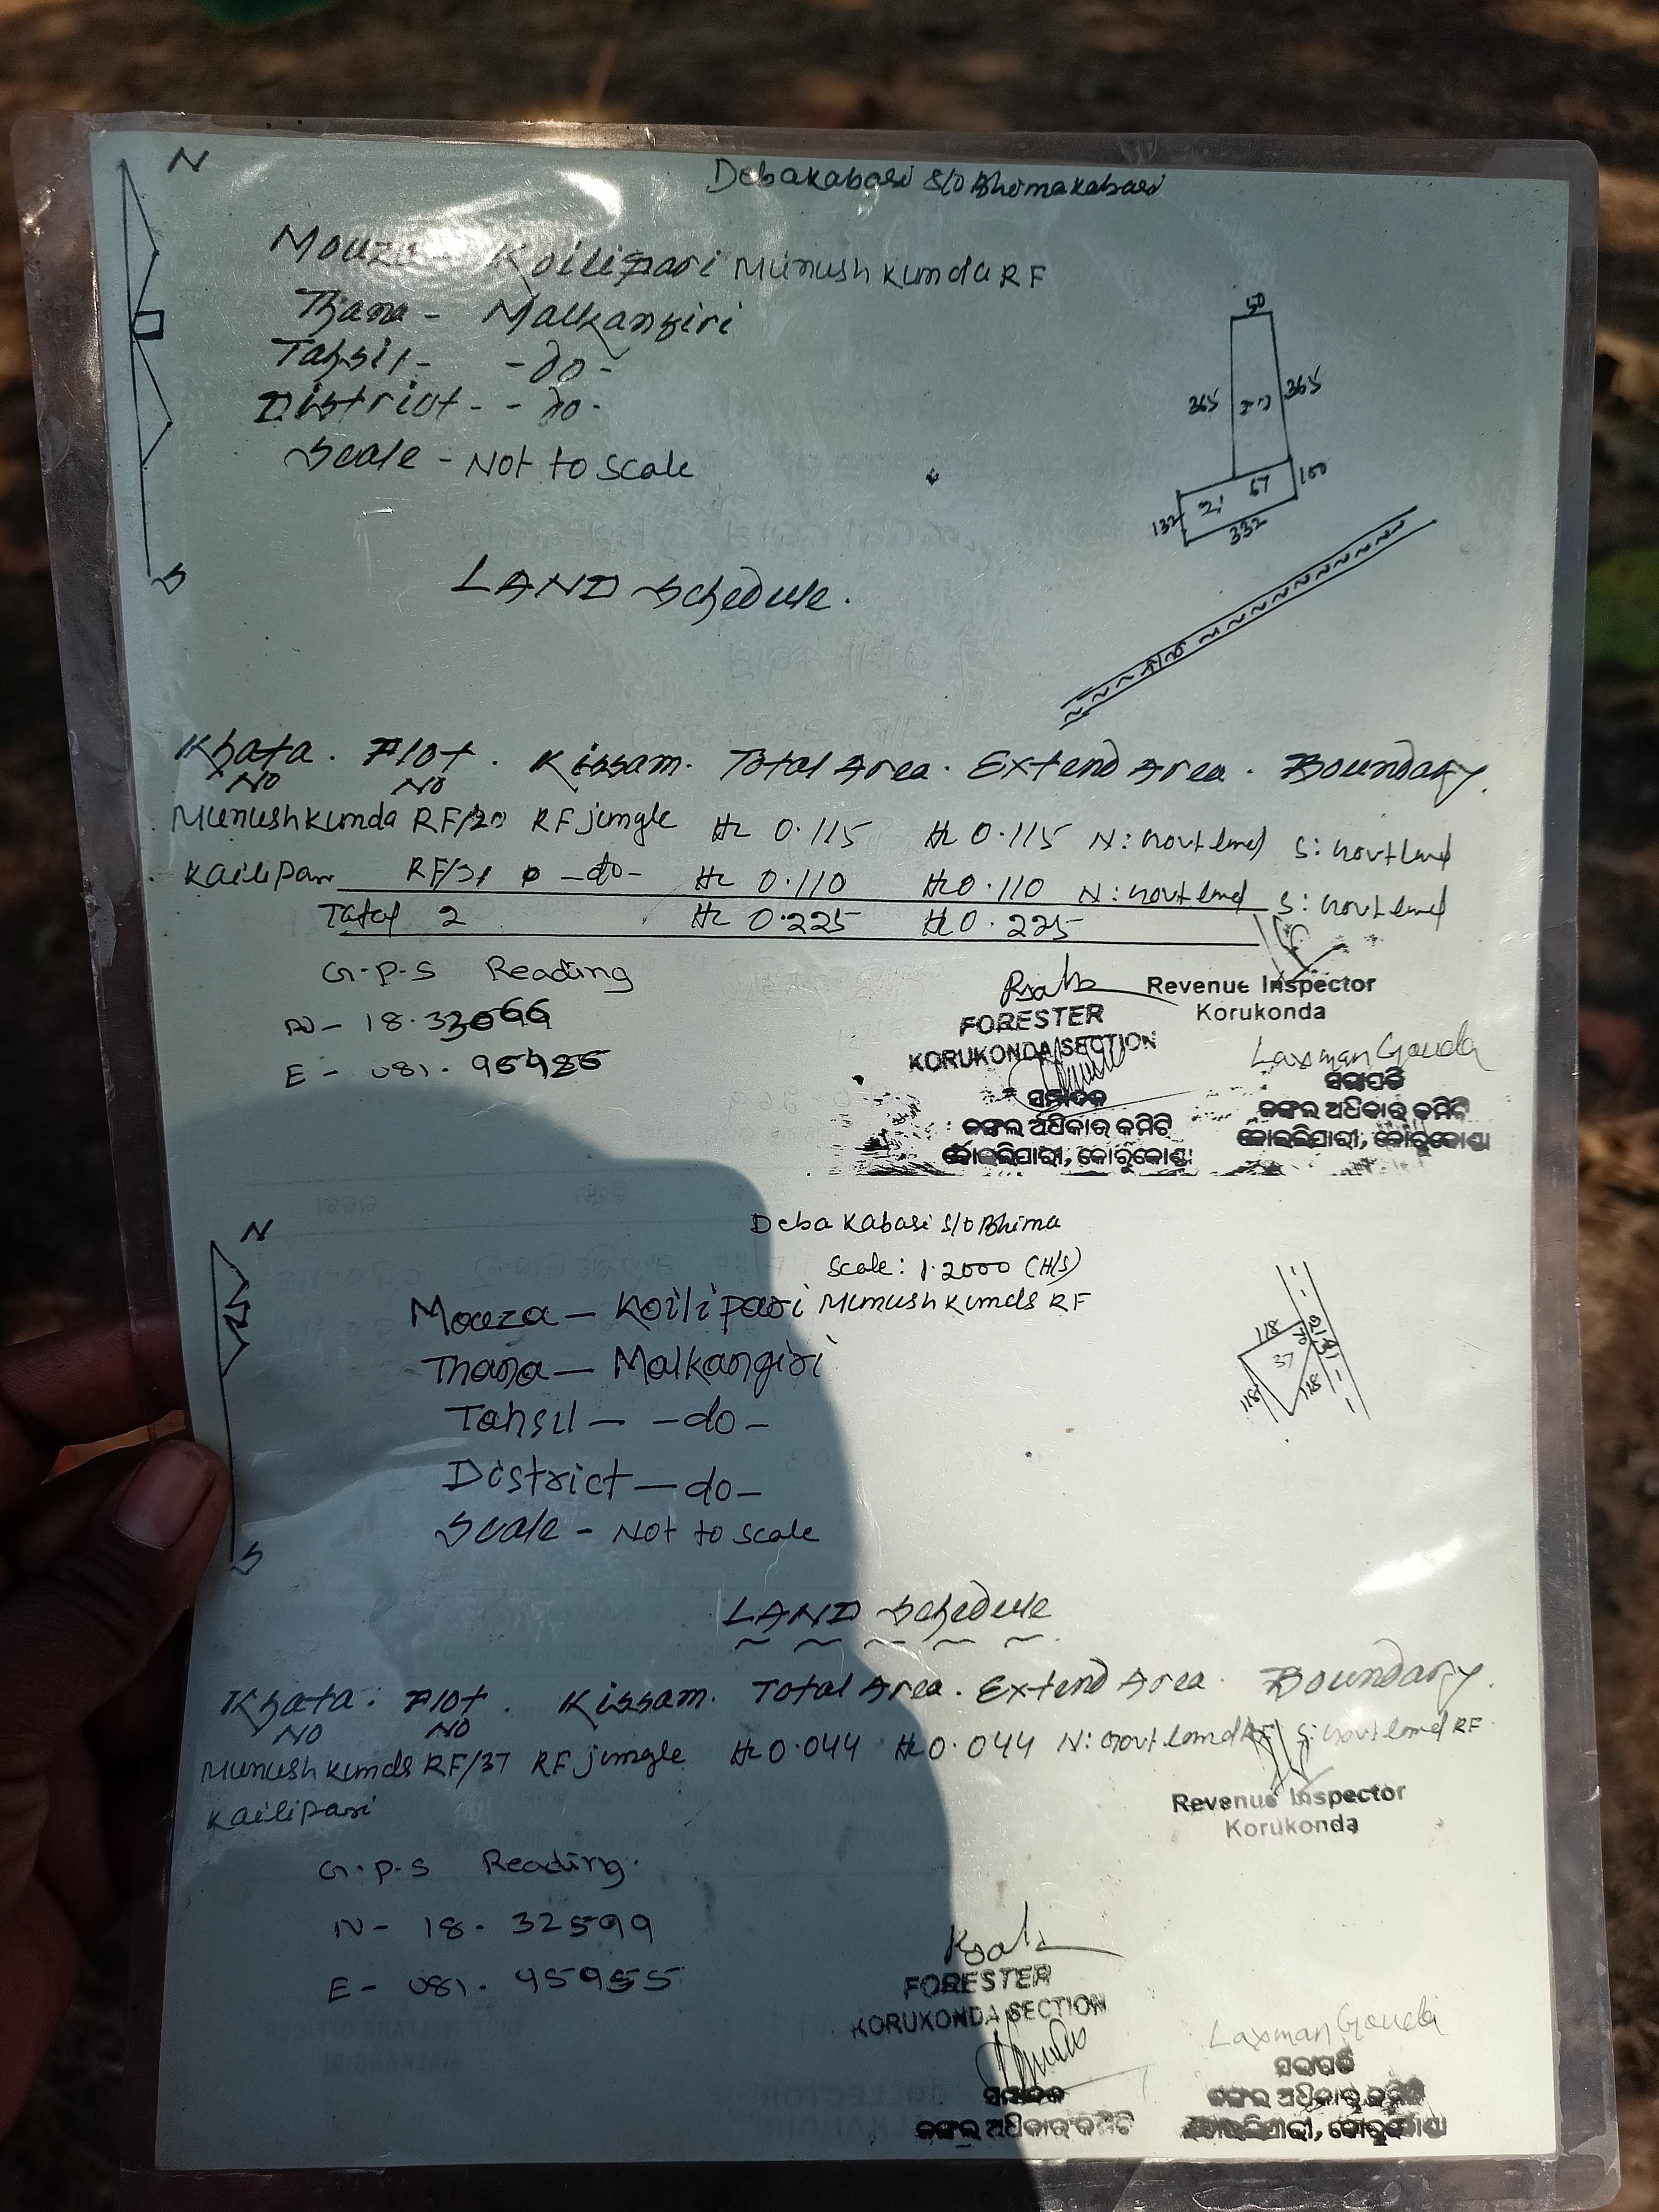 N
Debakabasi S/o Bhimakabasi
Mouza - Koilipari Munushkunda RF
Thana - Malkangiri
Tahsil - -do-
District - -do-
Scale - Not to scale
S
50
365
365
21
67
100
132
332
LAND Schedule.
Khata No. Plot No. Kissam. Total Area. Extend Area. Boundary.
Munushkunda RF/20 RF jungle Hc 0.115 Hc 0.115 N: Govt land S: Govt land
Kailipari RF/21 -do- Hc 0.110 Hc 0.110 N: Govt land S: Govt land
Total 2 Hc 0.225 Hc 0.225
G.P.S Reading
N - 18.33066
E - 081.
Revenue Inspector
Korukonda
FORESTER
KORUKONDA SECTION
Laxman Gouda
ସମ୍ପାଦକ
ଜଙ୍ଗଲ ଅଧିକାର କମିଟି
କୋଇଲିପାରୀ, କୋରୁକୋଣ୍ଡା
ସଭାପତି
ଜଙ୍ଗଲ ଅଧିକାର କମିଟି
କୋଇଲିପାରୀ, କୋରୁକୋଣ୍ଡା
N
Deba Kabasi S/o Bhima
Scale: 1.2000 (H/S)
Mouza - Koilipari Munushkunds RF
Thana - Malkangiri
Tahsil - -do-
District - do-
Scale - Not to scale
S
118
37
118
118
LAND Schedule
Khata No. Plot No. Kissam. Total Area. Extend Area. Boundary.
Munushkunds RF/37 RF jungle Hc 0.044 Hc 0.044 N: Govt land RF S: Govt land RF
Kailipari
Revenue Inspector
Korukonda
G.P.S Reading.
N - 18.32599
E - 081.95955
FORESTER
KORUKONDA SECTION
Laxman Gouda
ସମ୍ପାଦକ
ଜଙ୍ଗଲ ଅଧିକାର କମିଟି
ସଭାପତି
ଜଙ୍ଗଲ ଅଧିକାର କମିଟି
କୋଇଲିପାରୀ, କୋରୁକୋଣ୍ଡା